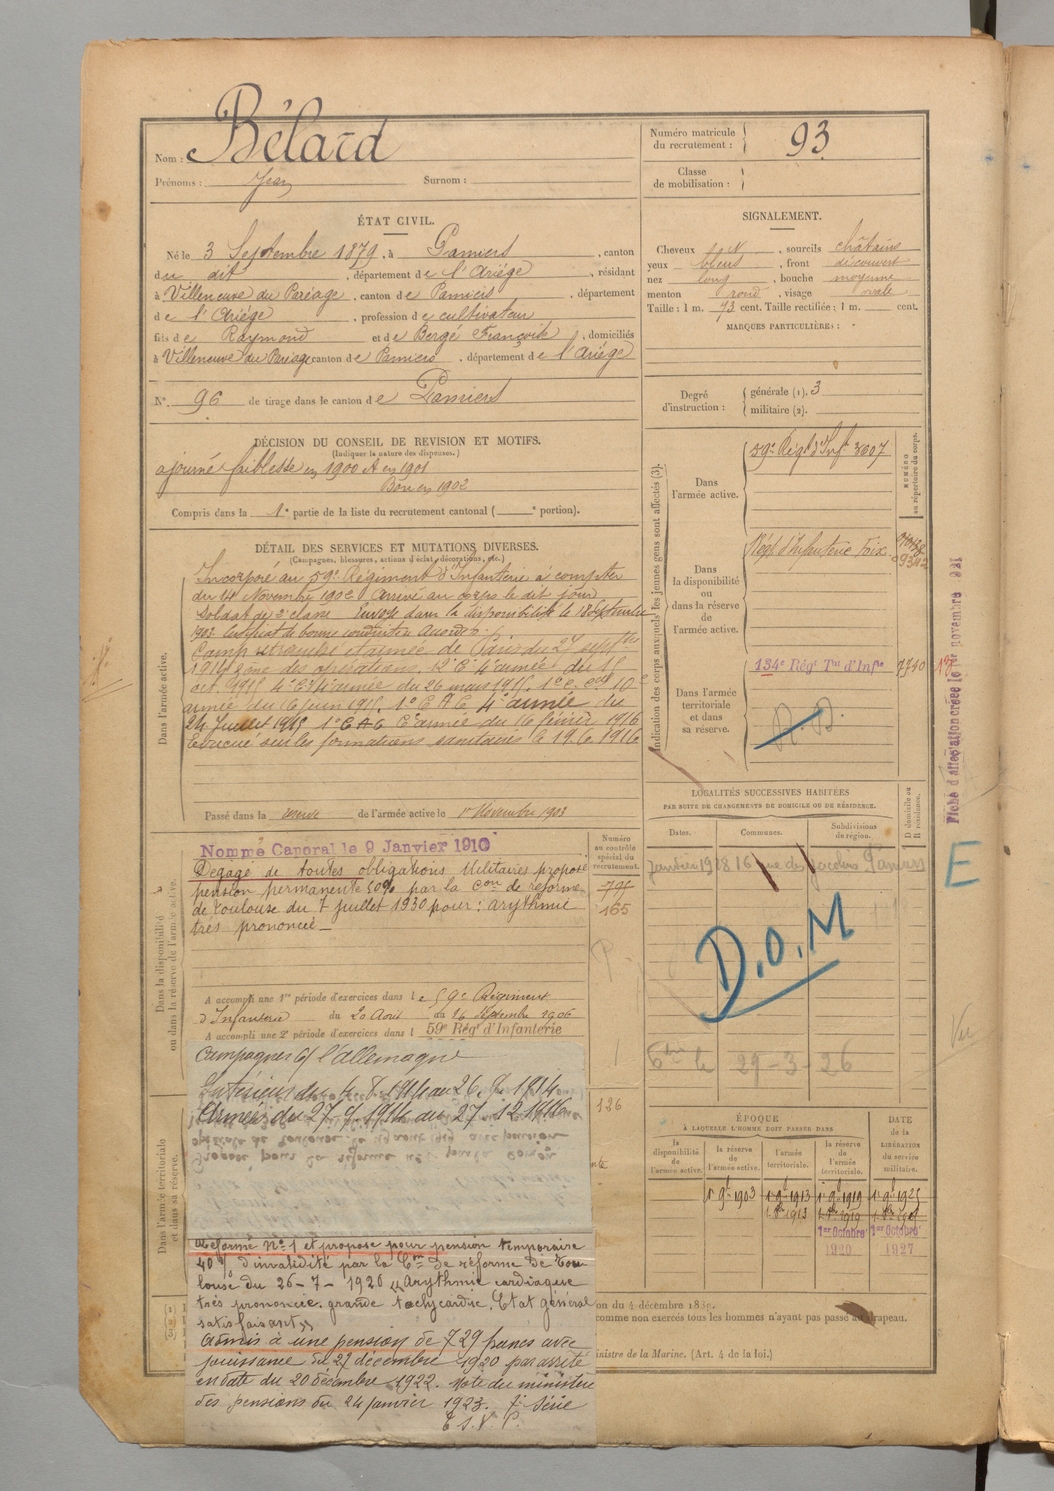 Nom : Bélard
Prénoms : Jean Surnom :
Numéro matricule du recrutement : 93
Classe de mobilisation :
ÉTAT CIVIL.
Né le 3 Septembre 1879, à Pamiers, canton
du dit, département de l'Ariège, résidant
à Villeneuve du Paréage, canton de Pamiers, département
de l'Ariège, profession de cultivateur
fils de Raymond et de Bergé Françoise, domiciliés
à Villeneuve du Paréage canton de Pamiers, département de l'Ariège
N° 96 de tirage dans le canton de Pamiers
SIGNALEMENT.
Cheveux , sourcils châtains
yeux bleus, front découvert
nez long, bouche moyenne
menton rond, visage ovale
Taille : 1 m. 73 cent. Taille rectifiée : 1 m. cent.
MARQUES PARTICULIÈRES :
Degré d'instruction : générale (1). 3
militaire (2).
DÉCISION DU CONSEIL DE REVISION ET MOTIFS.
(Indiquer la nature des dispenses.)
ajourné faiblesse en 1900 et en 1901
Bon en 1902
Compris dans la 1e partie de la liste du recrutement cantonal ( e portion).
DÉTAIL DES SERVICES ET MUTATIONS DIVERSES.
(Campagnes, blessures, actions d'éclat, décorations, etc.)
Dans l'armée active.
Incorporé au 59e Régiment d'Infanterie à compter
du 14 Novembre 1902 arrivé au corps le dit jour
soldat de 2e classe Envoyé dans la disponibilité le 18 Septembre
1903 Certificat de bonne conduite Accordé.
Camp retranché et armée de Paris du 27 septbre
1914 zone des opérations. 4e armée du 15
oct. 1915 4e armée du 26 mars 1915. 10e
armée du 16 juin 1915. 1° C A C 4e armée du
24 Juillet 1915 1° C A C 6e armée du 16 février 1916
Evacué sur les formations sanitaires le 19.6.1916
Passé dans la réserve de l'armée active le 1er Novembre 1903
Indication des corps auxquels les jeunes gens sont affectés (3).
NUMÉRO au répertoire du corps.
Dans l'armée active.
59e Régt d'Inf. 3607
Dans la disponibilité ou dans la réserve de l'armée active.
Régt d'Infanterie Foix
Dans l'armée territoriale et dans sa réserve.
134e Rég Tal d'Infie
Fiche d'affectation créée le 1er novembre 921
LOCALITÉS SUCCESSIVES HABITÉES
PAR SUITE DE CHANGEMENTS DE DOMICILE OU DE RÉSIDENCE.
Dates. Communes. Subdivisions de région. D domicile ou R résidence.
Janvier 1918 16 rue des Jacobins Pamiers
E
D.O.M
29-3-26
Dans la disponibilité ou dans la réserve de l'armée active.
Numéro au contrôle spécial du recrutement.
795
165
Nommé Caporal le 9 Janvier 1910
Dégagé de toutes obligations Militaires proposé
pension permanente 50% par la Con de réforme
de Toulouse du 7 juillet 1930 pour : arythmie
très prononcée
A accompli une 1re période d'exercices dans le 59e Régiment
d'Infanterie du 20 Août au 16 Septembre 1906
A accompli une 2e période d'exercices dans l 59e Régt d'Infanterie
Dans l'armée territoriale et dans sa réserve.
126
Campagnes c/ l'allemagne
Intérieur du 4.8.1914 au 26.9.1914
Armées du 27-9-1914 au 27.12.1916
Réformé n° 1 et proposé pour pension temporaire
40% d'invalidité par la Con de réforme de Tou
louse du 26-7-1920 "Arythmie cardiaque
très prononcée. grande tachycardie. Etat général
satisfaisant"
admis à une pension de 729 francs avec
jouissance du 27 décembre 1920 par arrêté
en date du 20 décembre 1922. Note du ministère
des pensions du 24 janvier 1923. série
T.S.V.P.
ÉPOQUE
À LAQUELLE L'HOMME DOIT PASSER DANS
la disponibilité de l'armée active. la réserve de l'armée active. l'armée territoriale. la réserve de l'armée territoriale.
DATE de la LIBÉRATION du service militaire.
1er 9b 1903 1er 9b 1913 1er 9b 1919 1er 9b 1925
1er Octobre 1er Octobre
1920 1927
on du 4 décembre 1889.
comme non exercés tous les hommes n'ayant pas passé au drapeau.
inistre de la Marine. (Art. 4 de la loi.)